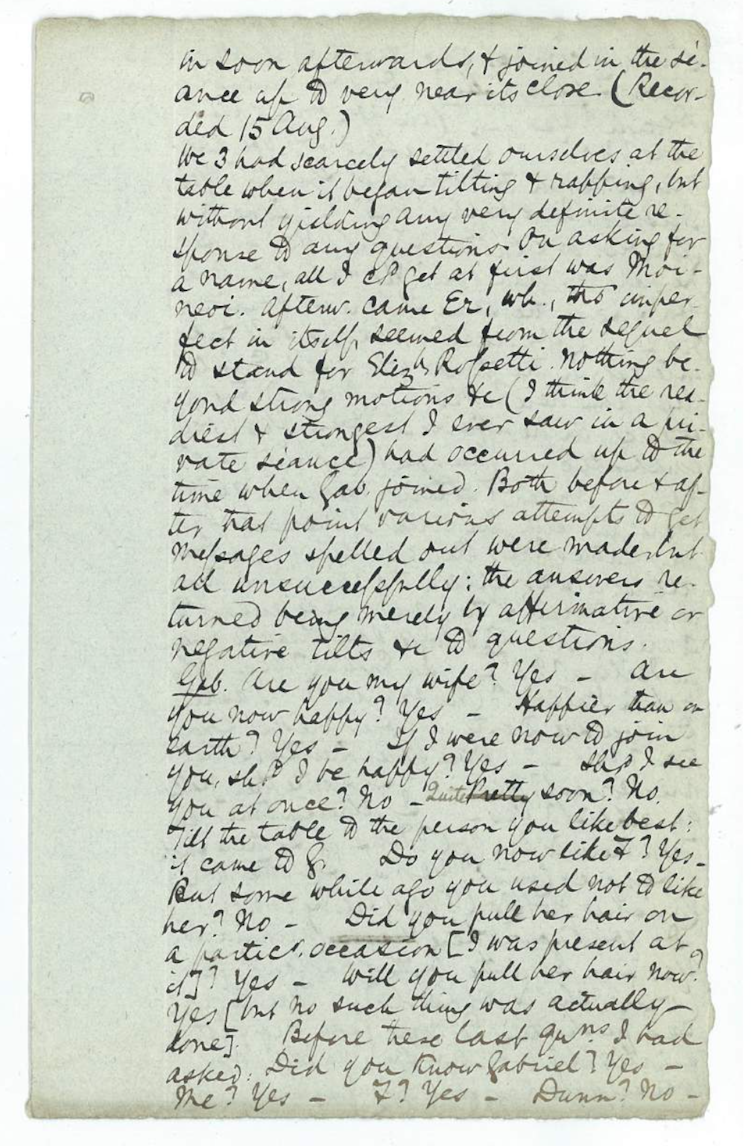 in soon afterwards, & joined in the sé-
ance up to very near its close. (Recor-
ded 15 Aug.)
We 3 had scarcely settled ourselves at the
table when it began tilting & rapping, but
without yielding any very definite re-
sponse to any questions. On asking for
a name, all I cd get at first was Moi-
neoi. Afterw. came Er, wh., tho' imper-
fect in itself, seemed from the sequel
to stand for Elizh Rossetti. Nothing be-
yond strong motions &c (I think the rea-
diest & strongest I ever saw in a pri-
vate séance) had occurred up to the
time when Gab. joined. Both before & af-
ter that point various attempts to get
messages spelled out were made, but
all unsuccessfully: the answers re-
turned being merely by affirmative or
negative tilts &c to questions.
Gab. Are you my wife? Yes – Are
you now happy? Yes – Happier than on
earth? Yes – If I were now to join
you, shd I be happy? Yes – Shd I see
you at once? No – Quite Pretty soon? No.
Tilt the table to the person you like best:
it came to G. Do you now like F? Yes –
But some while ago you used not to like
her? No – Did you pull her hair on
a particr. occasion [I was present at
it]? Yes – Will you pull her hair now?
Yes [but no such thing was actually
done]. Before these last quns I had
asked: Did you know Gabriel? Yes –
Me? Yes – F? Yes – Dunn? No –